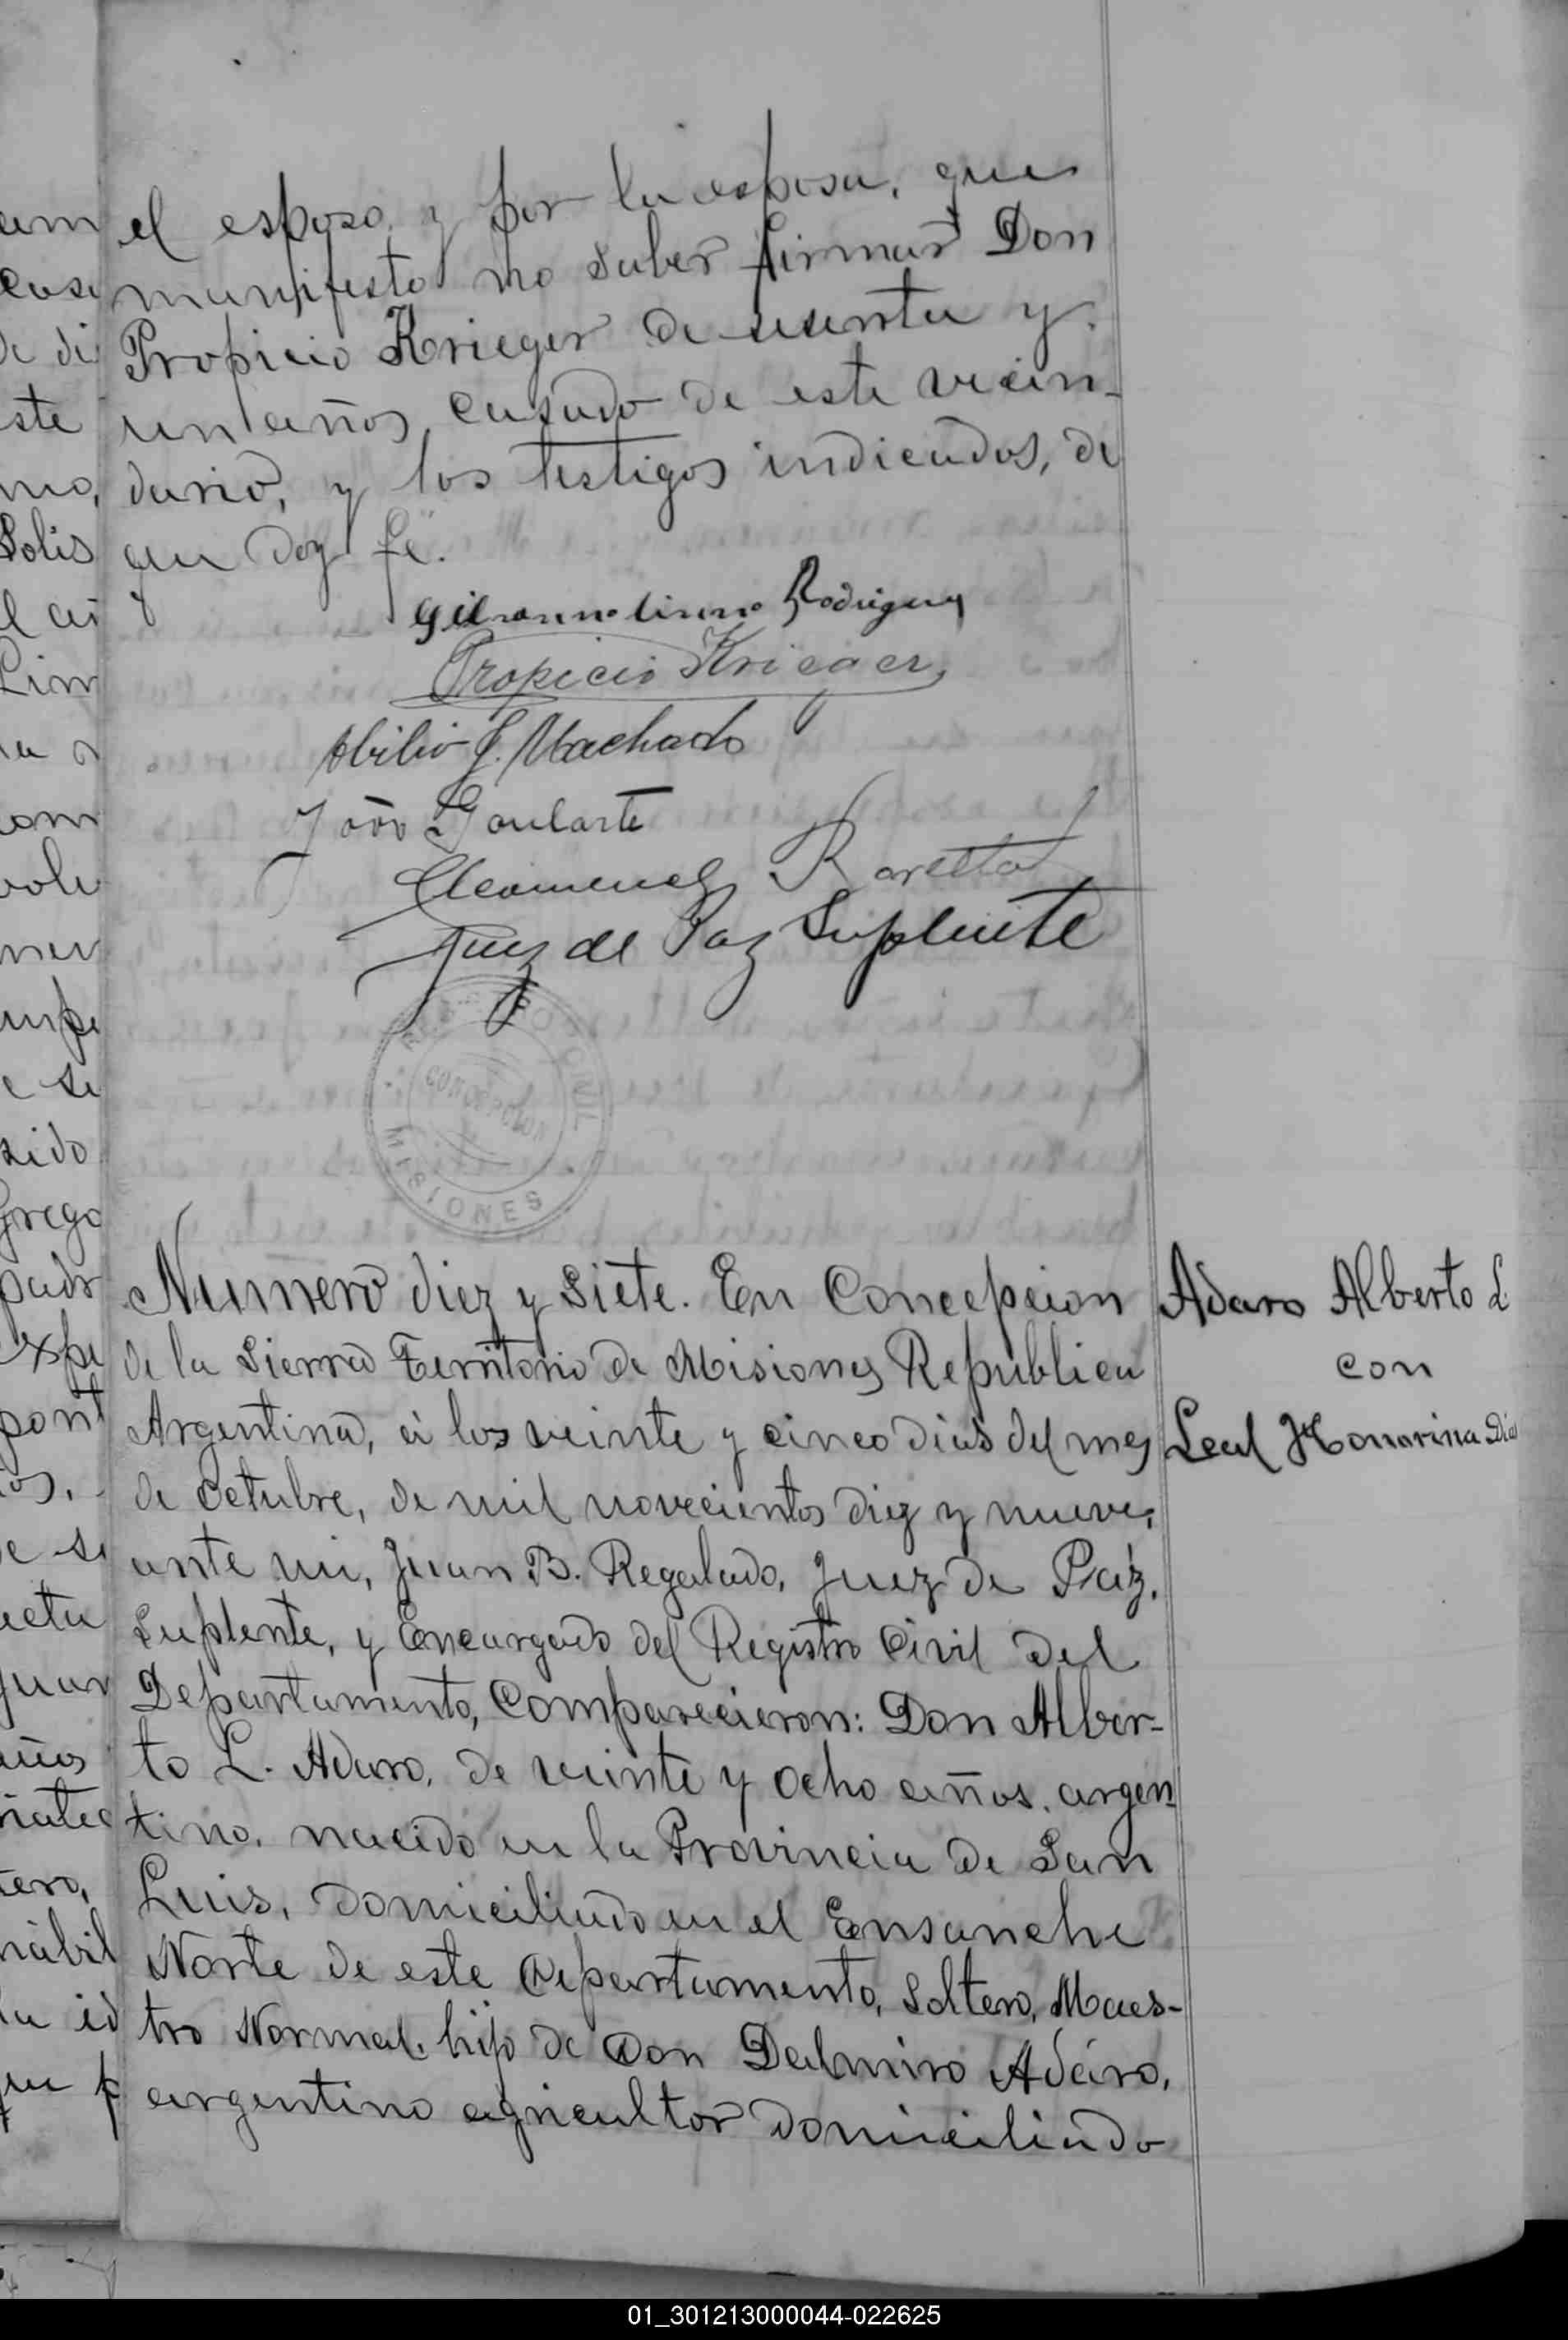 el esposo, y por la esposa, que
manifesto no saber firmar Don
Propicio Krieger de sesenta y
un años, casado de este vecin-
dario, y los testigos indicados, de
que doy fé.
Rodriguez
Propicio Krieger
Abilio J. Machado
João Goularte
Cleomenes
Juez de Paz Suplente
CONCEPCION
MISIONES
Numero diez y siete. En Concepcion
de la Sierra Territorio de Misiones Republica
Argentina, á los veinte y cinco dias del mes
de Octubre, de mil novecientos diez y nueve,
ante mi, Juan B. Regalado, Juez de Páz,
Suplente, y Encargado del Registro Civil del
Departamento, Comparecieron: Don Alber-
to L. Adaro, de veinte y ocho años, argen-
tino, nacido en la Provincia de San
Luis, domiciliado en el Ensanche
Norte de este Departamento, Soltero, Maes-
tro Normal, hijo de Don Dalmiro Adáro,
argentino agricultor domiciliado
Adaro Alberto L.
con
Leal Honorina Dias
01_301213000044-022625